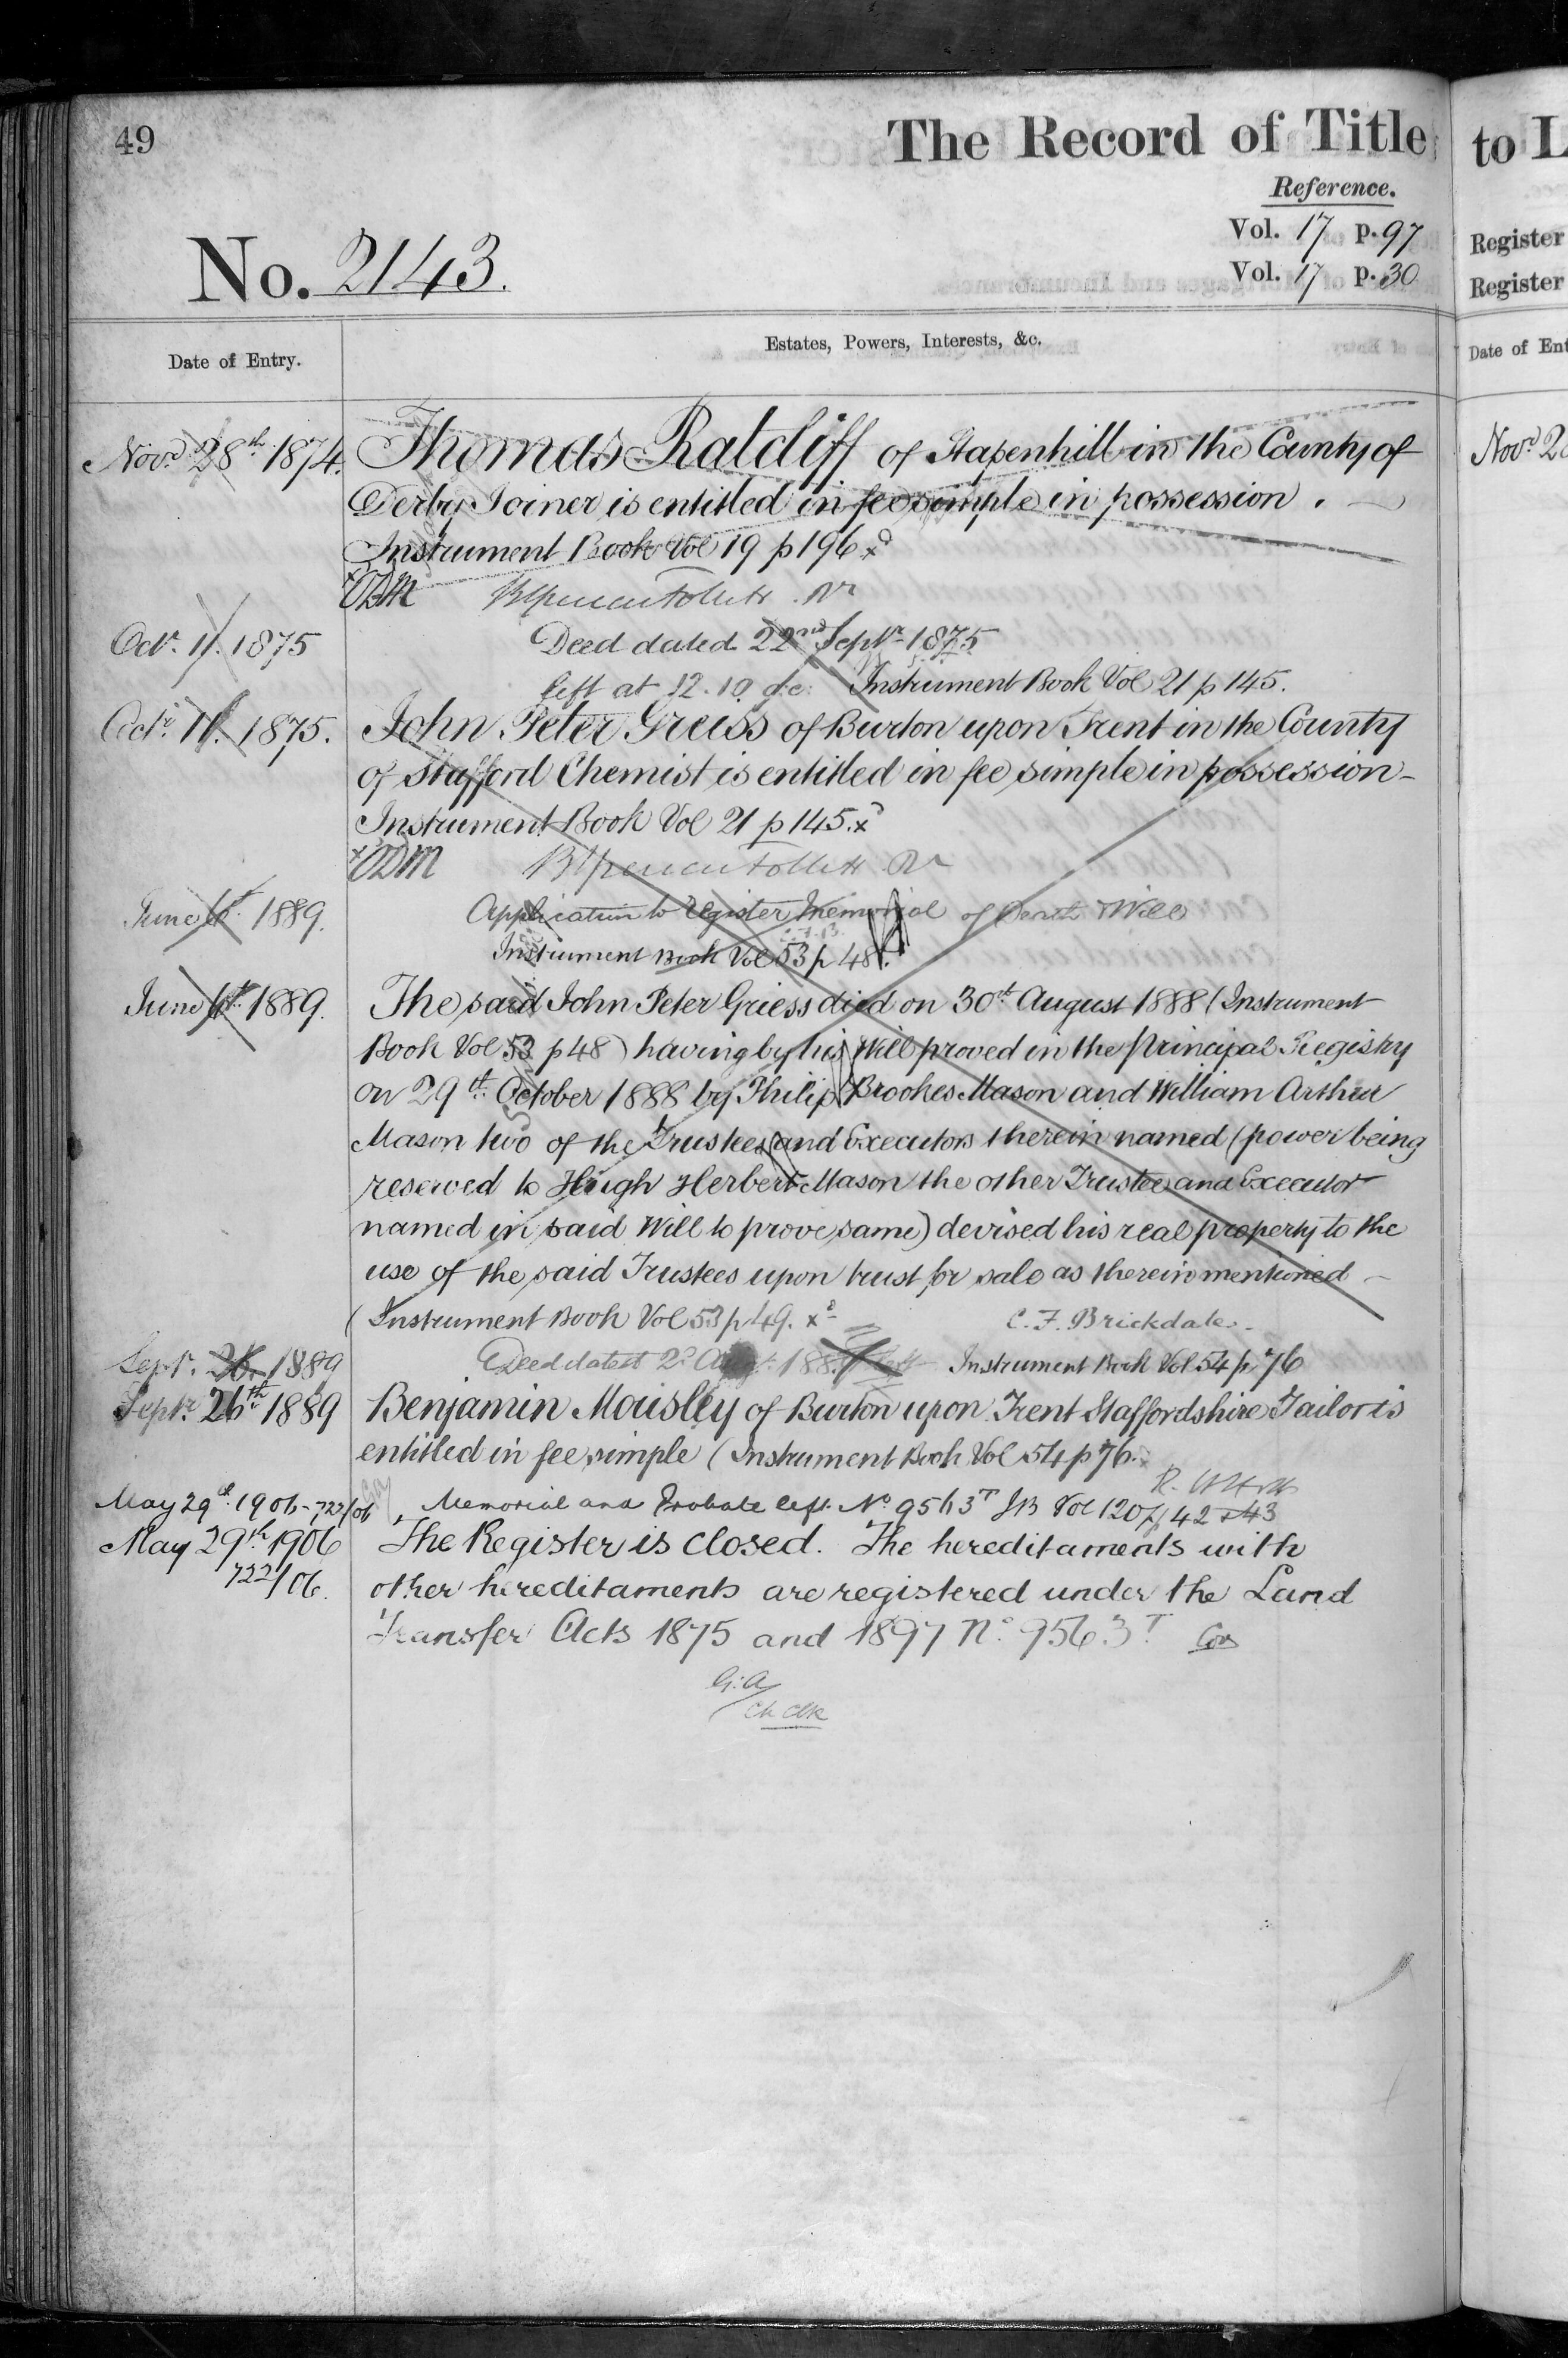 49
The Record of Title
Reference.
Vol. 17 p. 97
Vol. 17 p. 30
No. 2143.
Date of Entry.
Estates, Powers, Interests, &c.
Novr. 28th 1874. Thomas Ratcliff of Stapenhill in the County of
Derby Joiner is entitled in fee simple in possession.
Instrument Book Vol 19 p 196 x
Octr. 11. 1875 Deed dated 22nd Septr. 1875
left at 12.10 Instrument Book Vol 21 p 145.
Octr. 11. 1875. John Peter Greiss of Burton upon Trent in the County
of Stafford Chemist is entitled in fee simple in possession
Instrument Book Vol 21 p 145. x
June 1889. Application to register Memorial of Death & Will
Instrument Book Vol 53 p 48.
June 1889. The said John Peter Griess died on 30th August 1888 (Instrument
Book Vol 53 p 48) having by his Will proved in the Principal Registry
on 29th October 1888 by Philip Brookes Mason and William Arthur
Mason two of the Trustees and Executors therein named (power being
reserved to Hugh Herbert Mason the other Trustee and Executor
named in said Will to prove same) devised his real property to the
use of the said Trustees upon trust for sale as therein mentioned
(Instrument Book Vol 53 p 49. x C. F. Brickdale.
Septr. 26. 1889 Deed dated 2d Instrument Book Vol 54 p 76
Septr. 26th 1889 Benjamin Mousley of Burton upon Trent Staffordshire Tailor is
entitled in fee simple (Instrument Book Vol 54 p 76.
May 29th. 1906 - 722/06 Memorial and Probate left. No. 9563T IB Vol 120 p 42 & 43
May 29th 1906 The Register is closed. The hereditaments with
722/06. other hereditaments are registered under the Land
Transfer Acts 1875 and 1897 No. 9563T.
G. A.
Ch Clk
to L
Register
Register
Date of Ent
Novr. 28